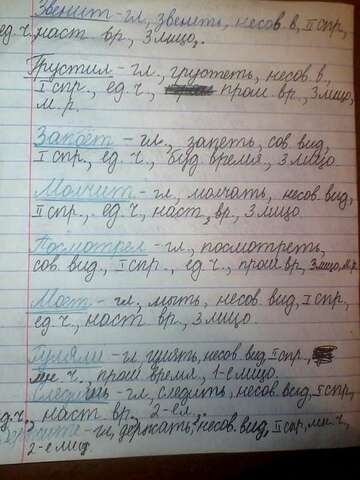 Звенит-гл, звенеть, несов. в, II спр,
ед. ч, наст вр., 3 лицо,.
Грустил-гл., грустеть, несов. в.,
I спр., ед. ч., прош вр., 3 лицо,
м. р.
Запоёт-гл., запеть, сов. вид,
I спр., ед. ч., буд. время, 3 лицо.
Молчит-гл, молчать, несов. вид,
II спр., ед. ч, наст, вр., 3 лицо
Посмотрел-гл., посмотреть,
сов. вид., I спр., ед. ч., прош вр, 3 лицо, м. р.
Моет-гл., мыть, несов. вид, I спр.,
ед. ч., наст вр., 3 лицо.
Гуляли-гл, гулять, несов. вид, I спр.,
мн. ч., прош время, 1-е лицо.
гл., следить, несов. вид, II спр,
ед. ч., наст вр., 2-ел..
гл, держать, несов. вид, II спр, мн. ч.,
2-е лиц.